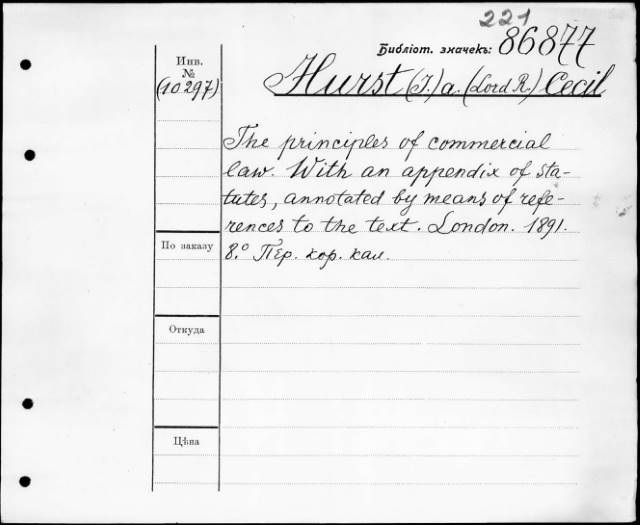 221
Библіот. значекъ: 86877
Инв.
№
(10297)
Hurst (J.) a. (Lord R.) Cecil
The principles of commercial
law. With an appendix of sta-
tutes, annotated by means of refe-
rences to the text. London. 1891.
8.º Пер. кор. кал.
По заказу
Откуда
Цѣна